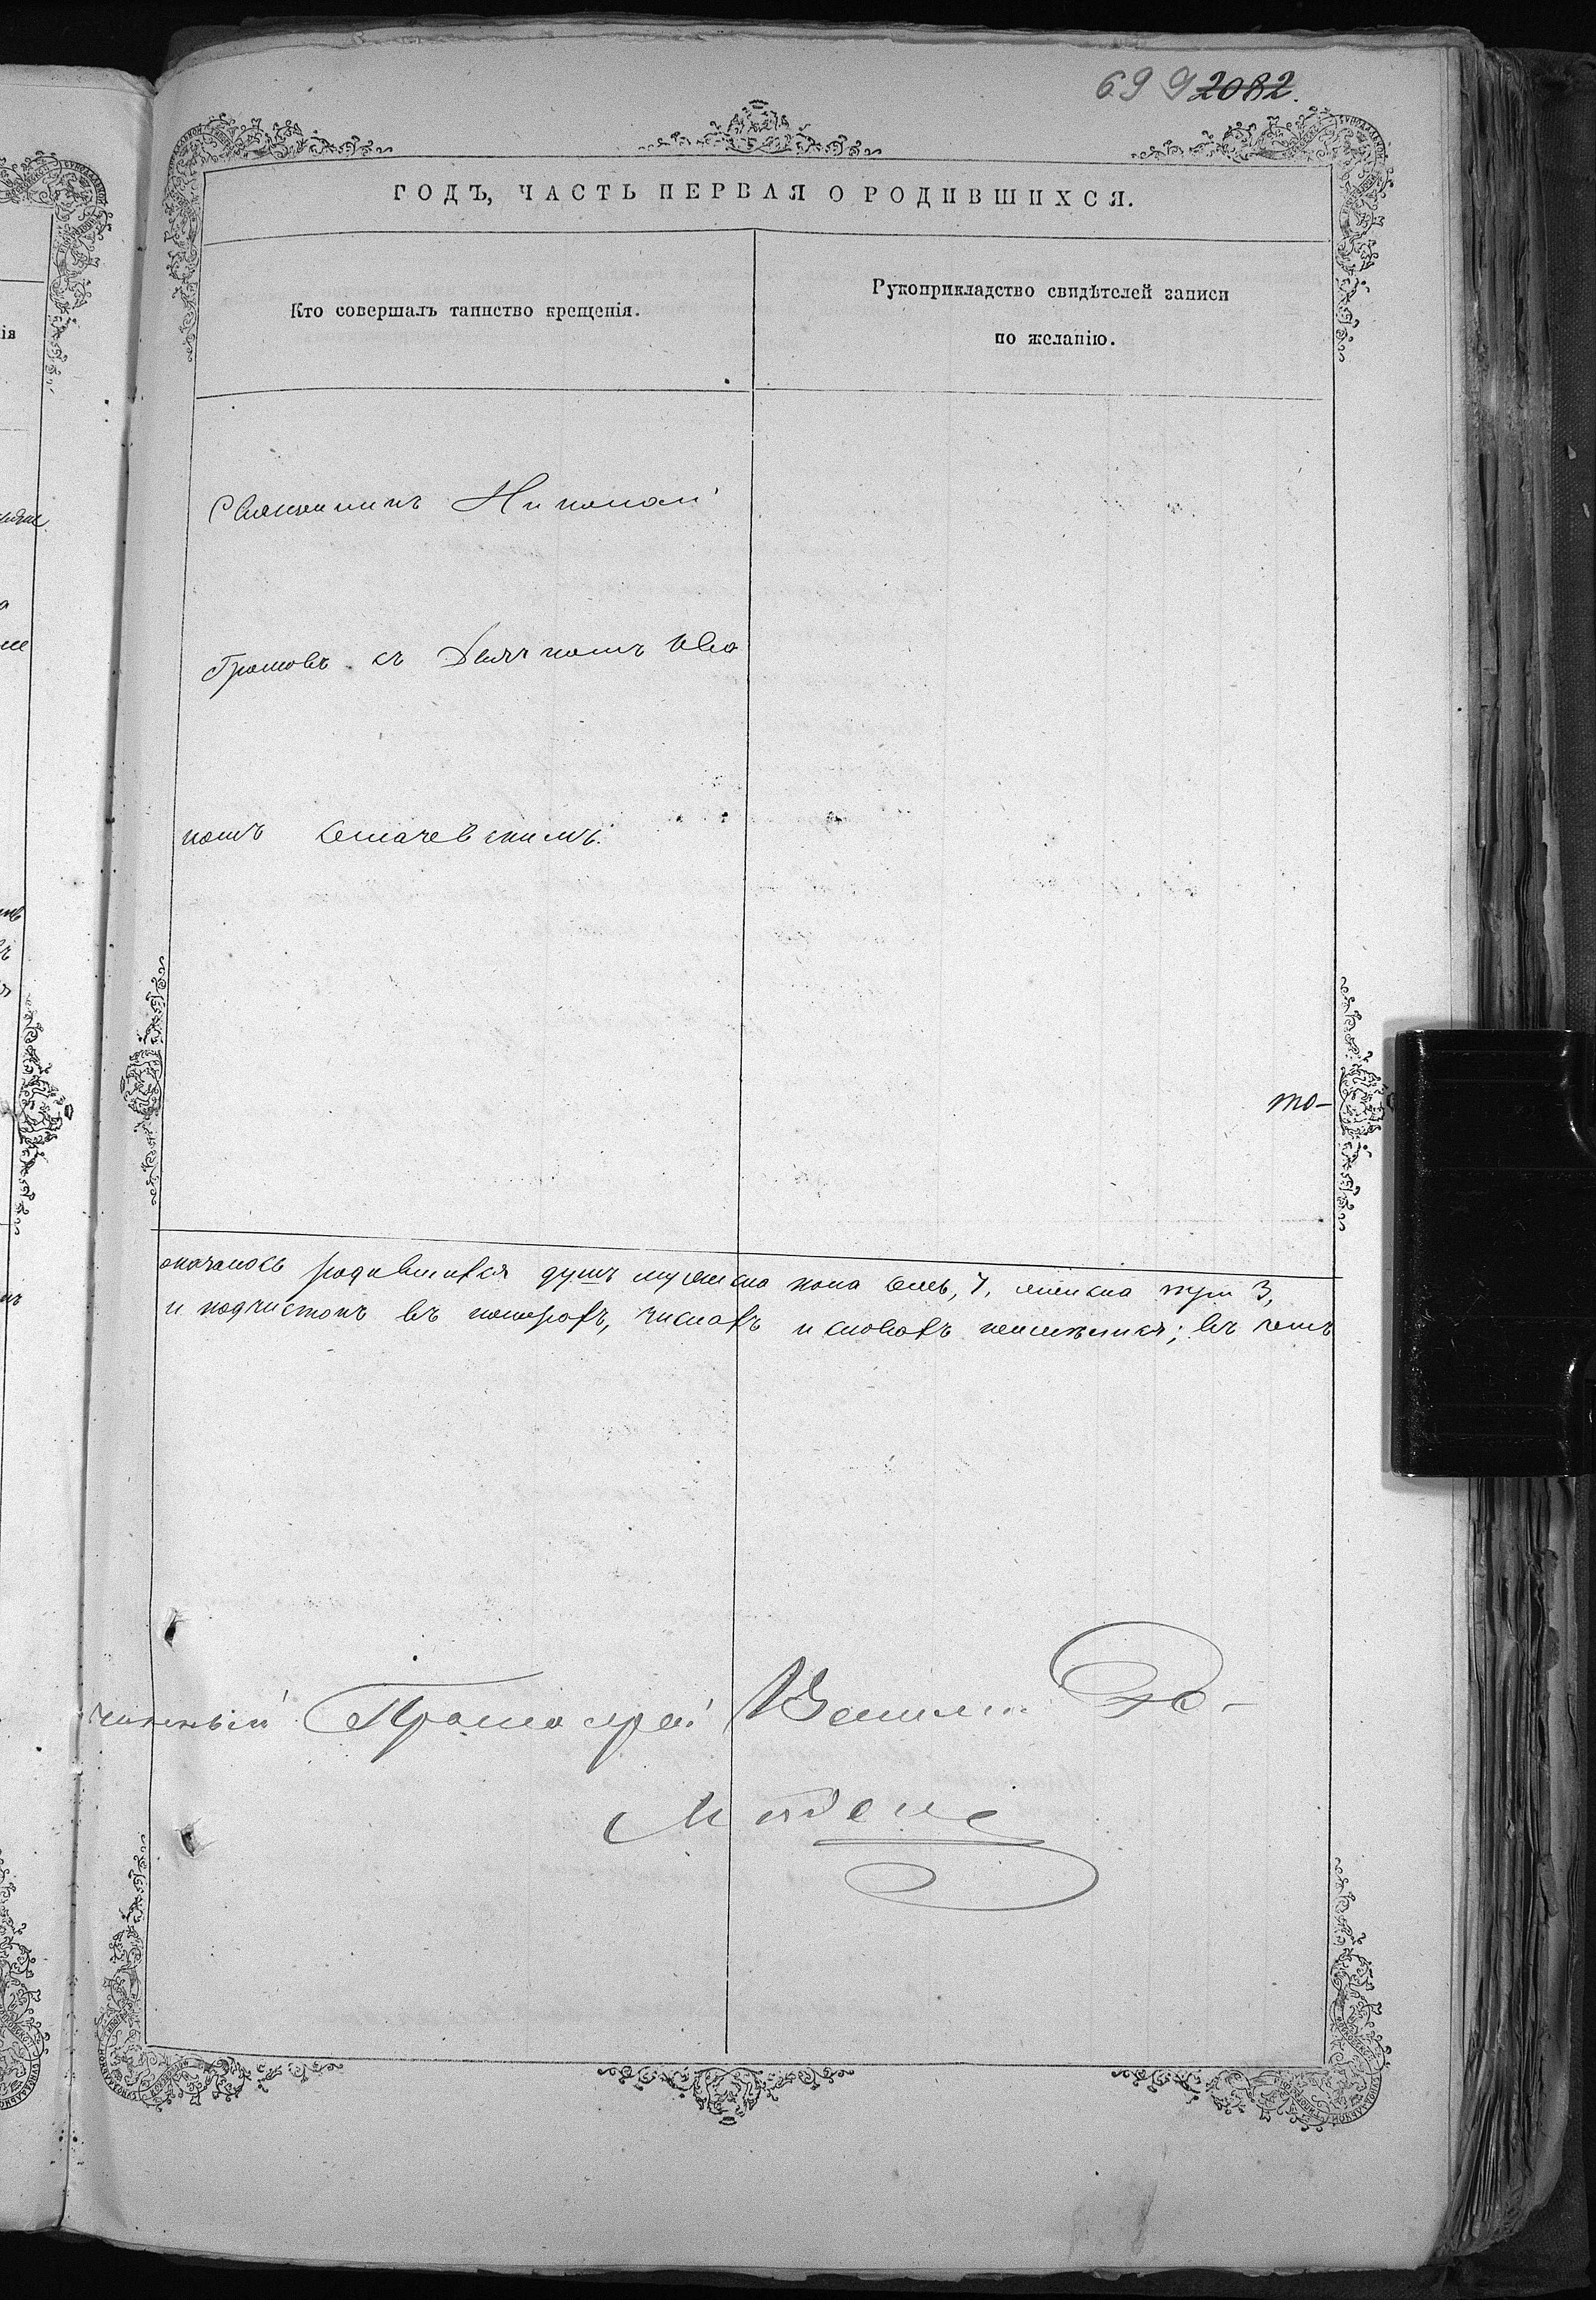 699 2082.
ГОДЪ, ЧАСТЬ ПЕРВАЯ О РОДИВШИХСЯ.
Кто совершалъ таинство крещенія.
Рукоприкладство свидѣтелей записи
по желанію.
Священникъ Николай
Громовъ съ Дьячкомъ Ива
номъ
то-
оказалось родившихся душъ мужска пола семь, 7, женска три 3,
и подчистокъ въ номерахъ, числахъ и словахъ неимѣется; въ чемъ
чинный Протоіерей Василій